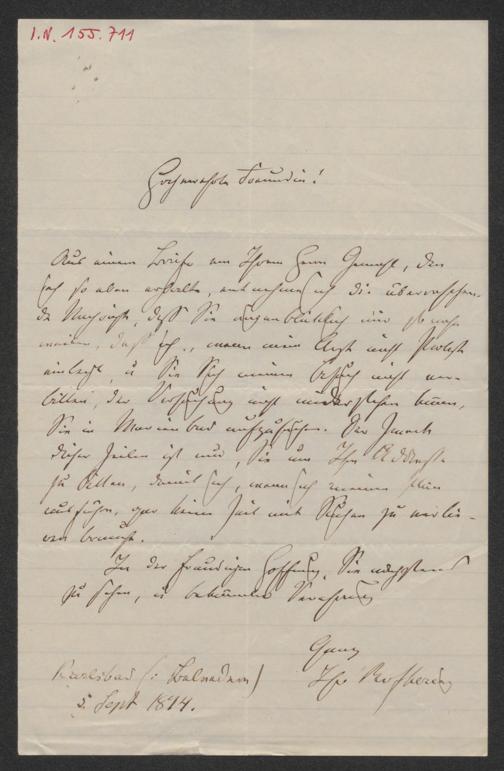 I.N. 155.711
Hochverehrte Freundin!
Aus einem Briefe von Ihrem Herrn Gemahl, den
ich so eben erhalte, entnehme ich die überraschen-
de Nachricht, daß Sie augenblicklich mir so nahe
weilen, daß ich, wenn mein Arzt nicht Protest
einlegt, u Sie sich meinen Besuch nicht ver-
bitten, der Versuchung nicht widerstehen kann,
Sie in Marienbad aufzusuchen. Der Zweck
dieser Zeilen ist nur, Sie um Ihre Addresse
zu bitten, damit ich, wenn ich meinen Plan
ausführe, gar keine Zeit mit Suchen zu verlie-
ren brauche.
In der freudigen Hoffnung, Sie nächstens
zu sehen, in bekannter Verehrung
Ganz
Ihr
Karlsbad (: Belvedere)
5. Sept 1874.